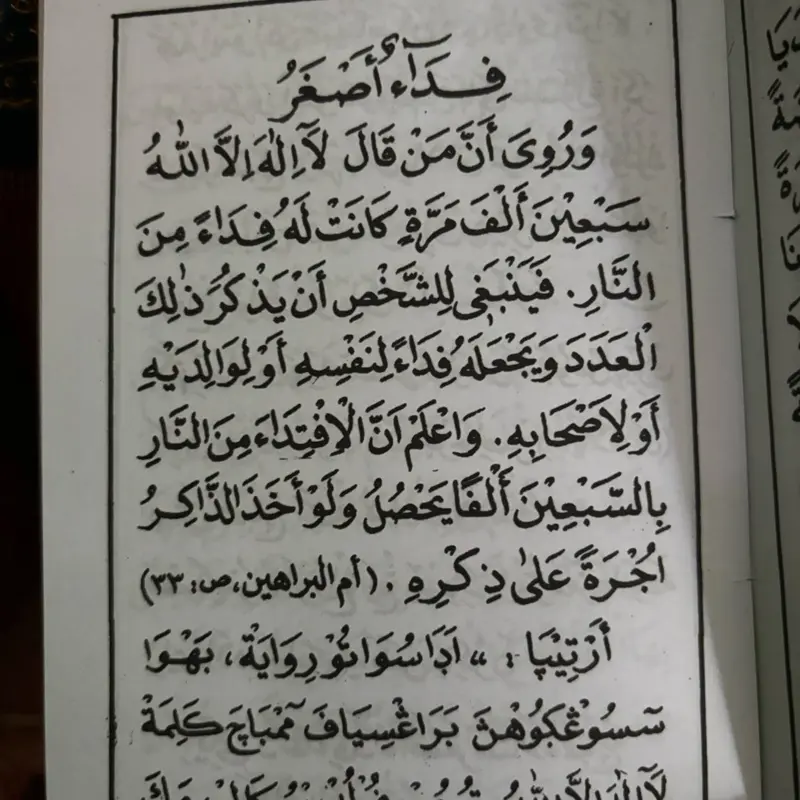 فِدَآءُ أَصْغَرُ
وَرُوِىَ أَنَّ مَنْ قَالَ لَآاِلٰهَ اِلَّا اللّٰهُ
سَبْعِيْنَ أَلْفَ مَرَّةٍ كَانَتْ لَهُ فِدَاءً مِنَ
النَّارِ. فَيَنْبَغِى لِلشَّخْصِ أَنْ يَذْكُرَ ذٰلِكَ
الْعَدَدَ وَيَجْعَلَهُ فِدَاءً لِنَفْسِهِ أَوْ لِوَالِدَيْهِ
أَوْ لِاَصْحَابِهِ. وَاعْلَمْ اَنَّ الْاِفْتِدَاءَ مِنَ النَّارِ
بِالسَّبْعِيْنَ أَلْفًا يَحْصُلُ وَلَوْ أَخَذَ الذَّاكِرُ
اُجْرَةً عَلَى ذِكْرِهِ. (أم البراهين، ص: ٣٣)
أَرْتِيْپَا : „ اَدَا سُوَاتُوْ رِوَايَةْ، بَهْوَا
سَسُوْڠْكَوُهْنَ بَرَاڠْسِيَافَ مَمْبَاچَ كَلِمَةْ
لَآاِلٰهَ اِلَّا اللّٰهُ